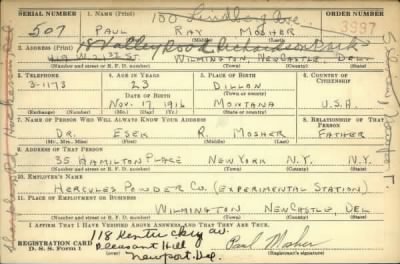 SERIAL NUMBER 1. NAME (Print) 100 Lindbergh Ave. ORDER NUMBER
507 PAUL RAY MOSHER 3997
(First) (Middle) (Last)
2. ADDRESS (Print) 18 Valley Road Richardson Park
W. 21 ST. WILMINGTON, NEWCASTLE, DEL
(Number and street or R. F. D. number) (Town) (County) (State)
3. TELEPHONE 4. AGE IN YEARS 5. PLACE OF BIRTH 6. COUNTRY OF CITIZENSHIP
3-1173 23 DILLON
DATE OF BIRTH (Town or county)
NOV. 17 1916 MONTANA U.S.A.
(Exchange) (Number) (Mo.) (Day) (Yr.) (State or country)
7. NAME OF PERSON WHO WILL ALWAYS KNOW YOUR ADDRESS 8. RELATIONSHIP OF THAT PERSON
DR. ESEK R. MOSHER FATHER
(Mr., Mrs., Miss) (First) (Middle) (Last)
9. ADDRESS OF THAT PERSON
35 HAMILTON PLACE NEW YORK N.Y. N.Y.
(Number and street or R. F. D. number) (Town) (County) (State)
10. EMPLOYER'S NAME
HERCULES POWDER CO. (EXPERIMENTAL STATION)
11. PLACE OF EMPLOYMENT OR BUSINESS
WILMINGTON NEWCASTLE, DEL
(Number and street or R. F. D. number) (Town) (County) (State)
I AFFIRM THAT I HAVE VERIFIED ABOVE ANSWERS AND THAT THEY ARE TRUE.
REGISTRATION CARD
D. S. S. Form 1
118 Kentucky av.
Pleasant Hill
Newport, Del.
Paul Mosher